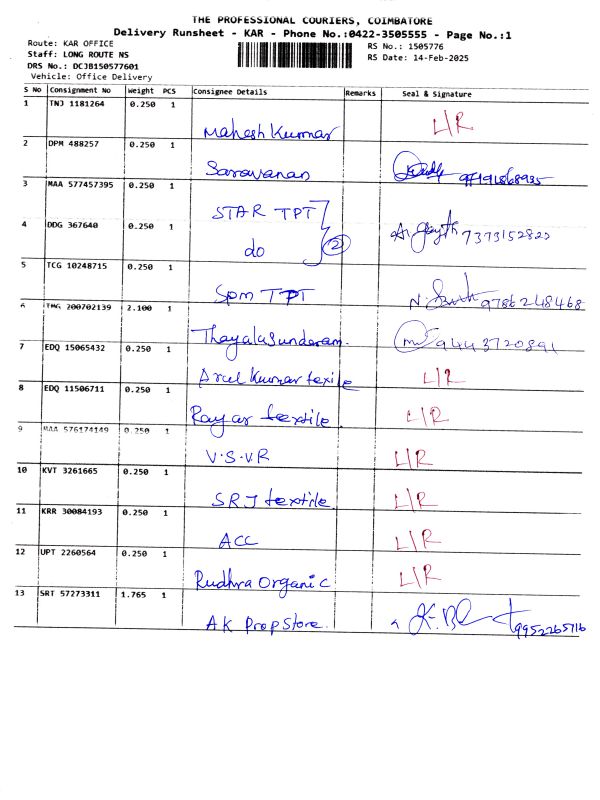 THE PROFESSIONAL COURIERS, COIMBATORE
Delivery Runsheet - KAR - Phone No.:0422-3505555 - Page No.:1
Route: KAR OFFICE
RS No.: 1505776
Staff: LONG ROUTE NS
RS Date: 14-Feb-2025
DRS No.: DCJB150577601
Vehicle: Office Delivery
S No Consignment No Weight PCS Consignee Details Remarks Seal & Signature
1 TNJ 1181264 0.250 1 Mahesh Kummar L/R
2 DPM 488257 0.250 1 Saravanan
3 MAA 577457395 0.250 1 STAR TPT
4 DDG 367640 0.250 1 do 2 7373152822
5 TCG 10248715 0.250 1 Spm TPT 9786248468
6 TMG 200702139 2.100 1 Thayalasundaram. 9443720891
7 EDQ 15065432 0.250 1 Kummar texile L/R
8 EDQ 11506711 0.250 1 Rayar textile L/R
9 MAA 576174149 0.250 1 V.S.VR L/R
10 KVT 3261665 0.250 1 SRJ textile L/R
11 KRR 30084193 0.250 1 ACC L/R
12 UPT 2260564 0.250 1 Rudhra Organic L/R
13 SRT 57273311 1.765 1 AK Prop Store. 9952265716